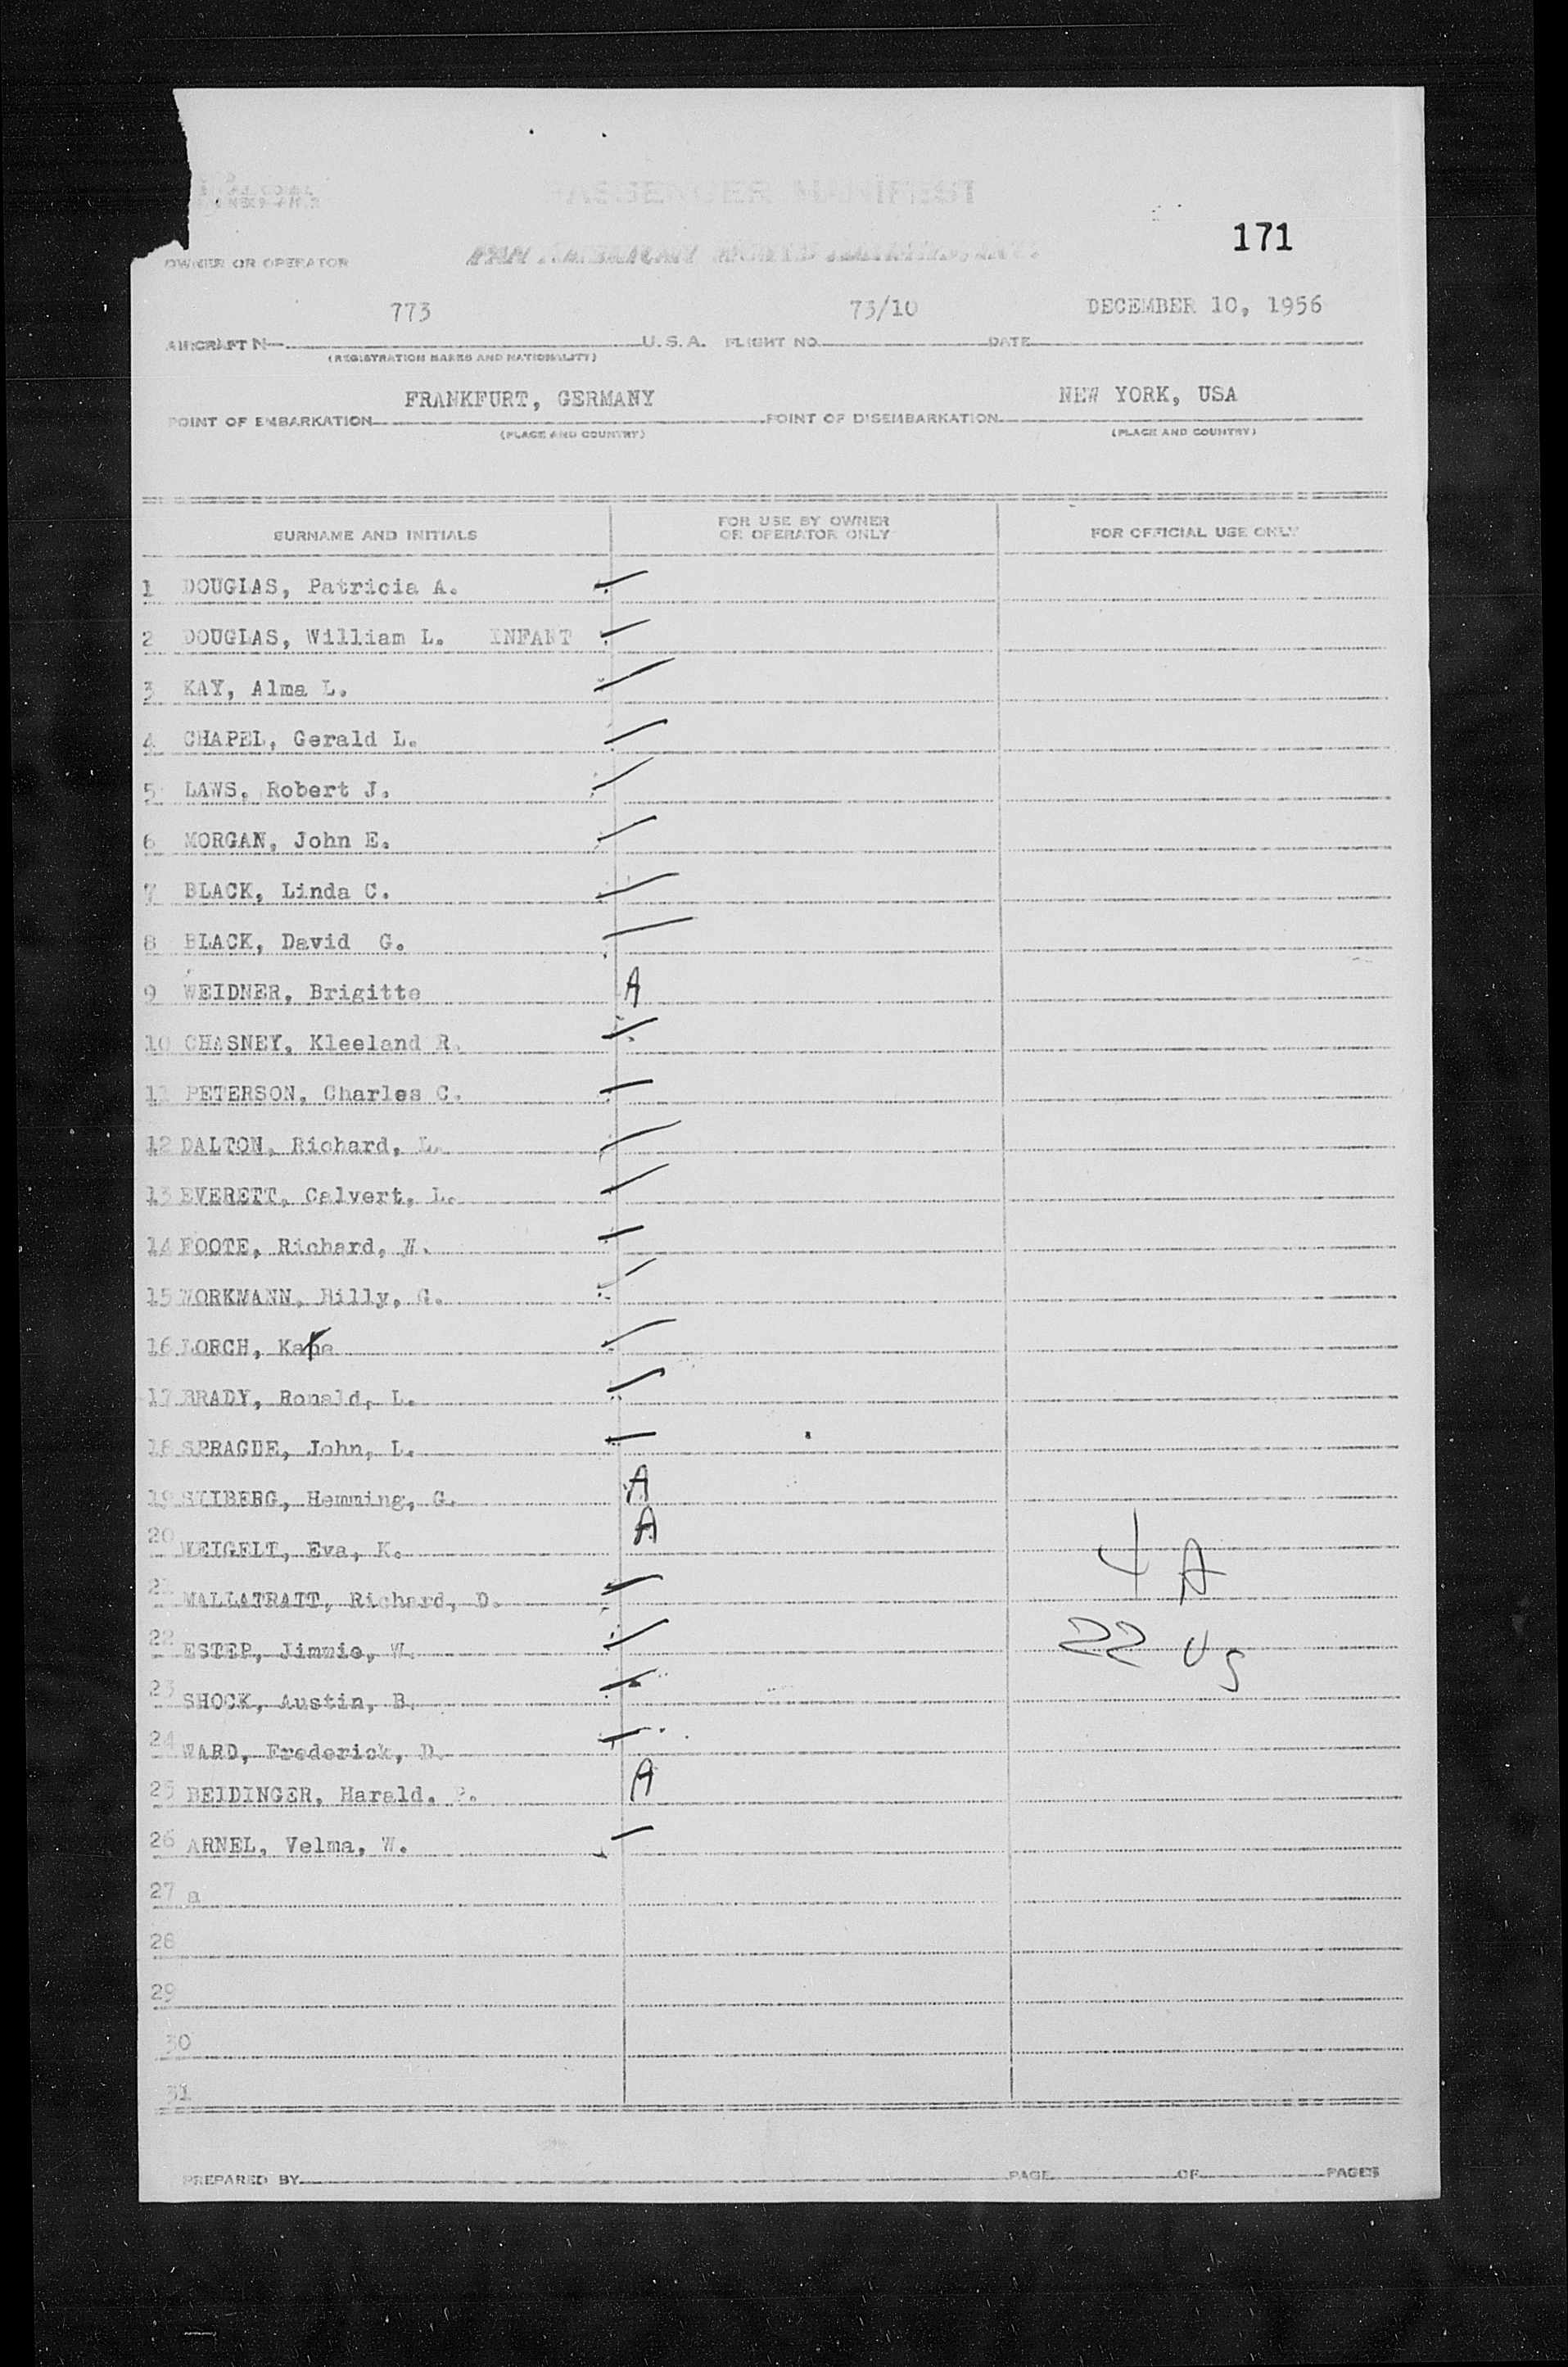 PASSENGER MANIFEST
171
OWNER OR OPERATOR PAN AMERICAN WORLD AIRWAYS, INC.
773 73/10 DECEMBER 10, 1956
AIRCRAFT N U.S.A. FLIGHT NO. DATE
(REGISTRATION MARKS AND NATIONALITY)
FRANKFURT, GERMANY NEW YORK, USA
POINT OF EMBARKATION POINT OF DISEMBARKATION
(PLACE AND COUNTRY) (PLACE AND COUNTRY)
SURNAME AND INITIALS FOR USE BY OWNER OR OPERATOR ONLY FOR OFFICIAL USE ONLY
1 DOUGLAS, Patricia A.
2 DOUGLAS, William L. INFANT
3 KAY, Alma L.
4 CHAPEL, Gerald L.
5 LAWS, Robert J.
6 MORGAN, John E.
7 BLACK, Linda C.
8 BLACK, David G.
9 WEIDNER, Brigitte A
10 CHASNEY, Kleeland R.
11 PETERSON, Charles C.
12 DALTON, Richard, L.
13 EVERETT, Calvert, L.
14 FOOTE, Richard, W.
15 WORKMANN, Billy, G.
16 LORCH,
17 BRADY, Ronald, L.
18 SPRAGUE, John, L.
19 STIBERG, Hemming, G. A
20 WEIGELT, Eva, K. A
4 A
21 MALLATRATT, Richard, D.
22 ESTEP, Jimmie, W.
22 US
23 SHOCK, Austin, B.
24 WARD, Frederick, D.
25 BEIDINGER, Harald. P. A
26 ARNEL, Velma, W.
27 a
28
29
30
31
PREPARED BY PAGE OF PAGES